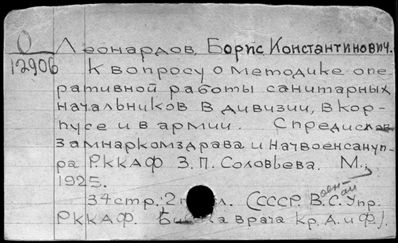 О
12906
Леонардов, Борис Константинович.
К вопросу о методике опе-
ративной работы санитарных
начальников в дивизии, в кор-
пусе и в армии. С предислов.
Замнаркомздрава и Начвоенсануп-
ра РККАФ З.П. Соловьева. М.,
1925.
34 стр.; 2 л. (СССР. В.С. Упр.
РККАФ. врача Кр. А. и Ф.).